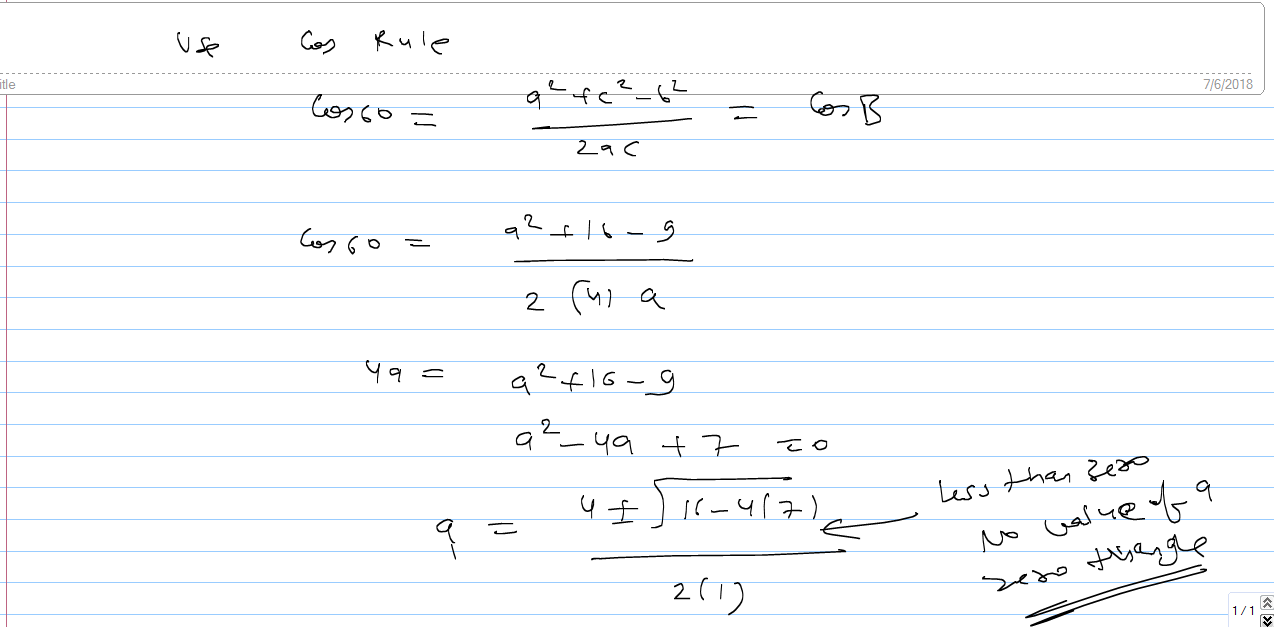 Use Cos Rule
itle
7/6/2018
Cos 60 = (a² + c² - b²) / 2ac = Cos B
Cos 60 = (a² + 16 - 9) / 2 (4) a
4a = a² + 16 - 9
a² - 4a + 7 = 0
a = (4 ± √16 - 4(7)) / 2(1)
Less than zero
No value of a
zero triangle
1/1